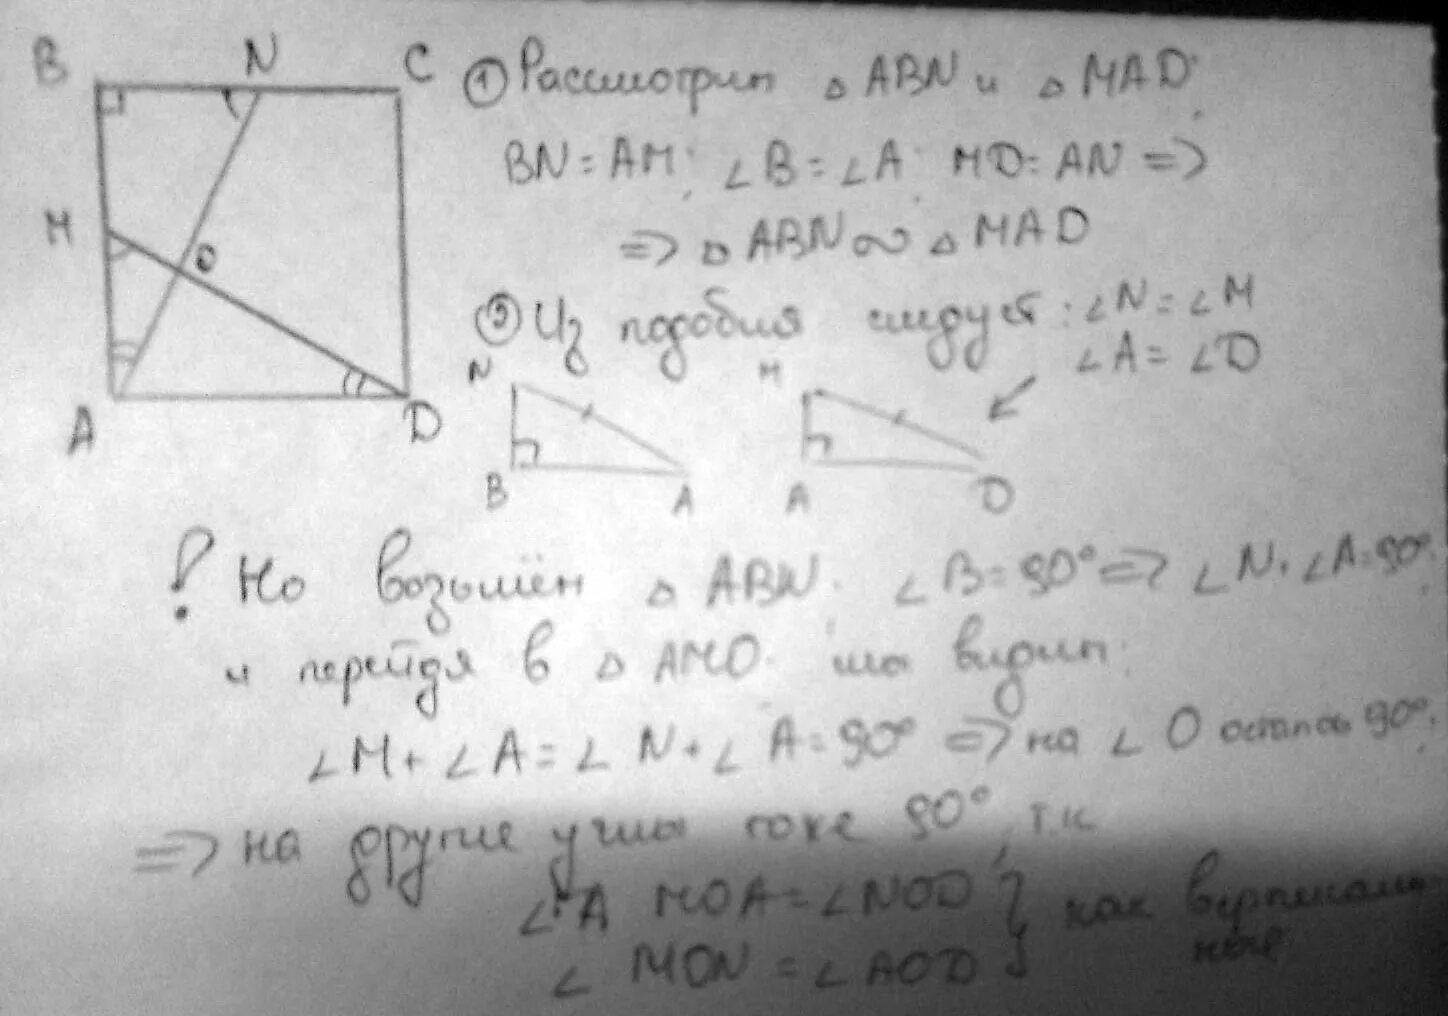 B N C
M
O
A D
① Рассмотрим △ ABN и △ MAD:
BN = AM; ∠B = ∠A; MD = AN =>
=> △ ABN ∾ △ MAD
② Из подобия следует: ∠N = ∠M
∠A = ∠D
N M
B A A D
! Но возьмём △ ABN. ∠B = 90° => ∠N + ∠A = 90°
и перейдя в △ AMO. мы видим:
∠M + ∠A = ∠N + ∠A = 90° => на ∠O осталось 90°.
=> на другие углы тоже 90°, т.к
∠ MOA = ∠NOD } как вертикаль-
∠ MON = ∠AOD ные